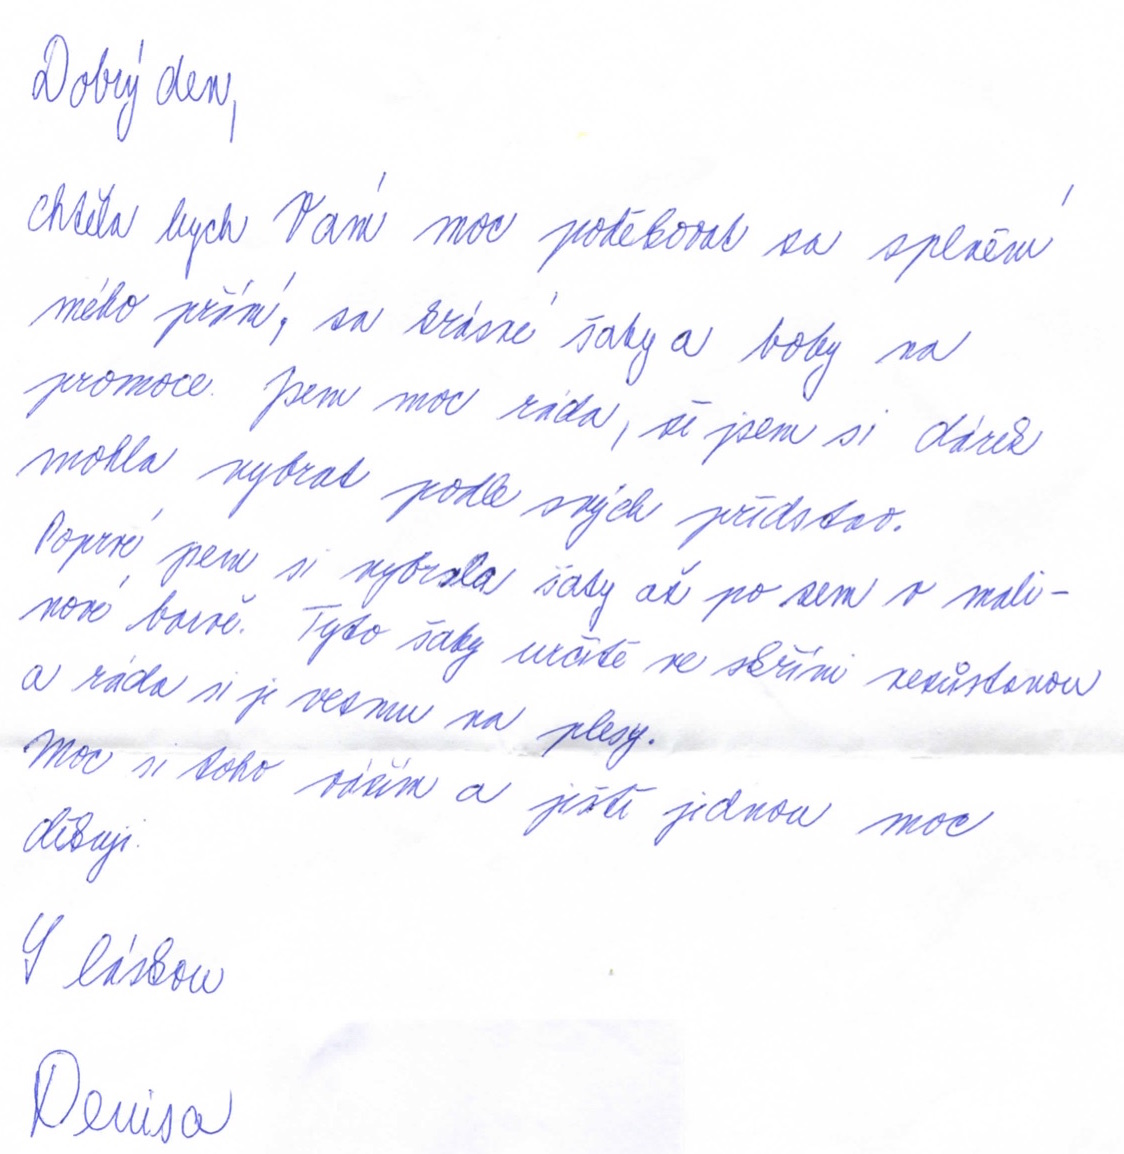 Dobrý den,
chtěla bych Vám moc poděkovat za splnění
mého přání, za krásné šaty a boty na
promoce. Jsem moc ráda, že jsem si dárek
mohla vybrat podle svých představ.
Poprvé jsem si vybrala šaty až po zem v mali-
nové barvě. Tyto šaty určitě ve skříni nezůstanou
a ráda si je vezmu na plesy.
Moc si toho vážím a ještě jednou moc
děkuji.
S láskou
Denisa